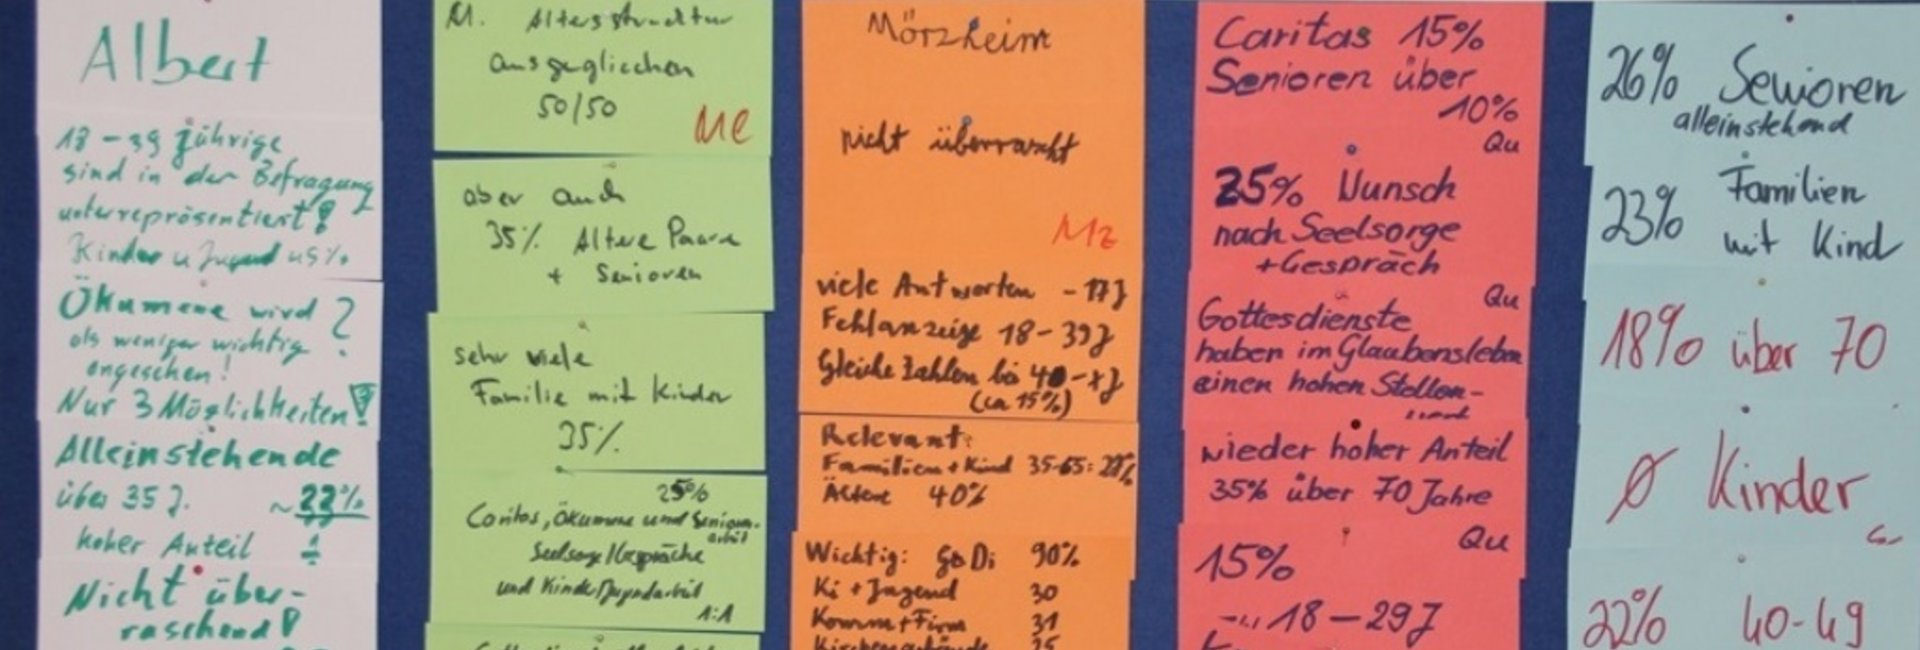 Albert
18 - 39 jährige
sind in der Befragung
unterrepräsentiert!
Kinder u Jugend 45%
Ökumene wird ?
als weniger wichtig
angesehen!
Nur 3 Möglichkeiten!
Alleinstehende
über 35 J. ~ 22%
hoher Anteil
Nicht über-
raschend!
M. Altersstruktur
ausgegliechen
50/50
Me
aber auch
35% Altere Paare
+ Senioren
sehr viele
Familie mit Kinder
35%
25%
Caritas, Ökumene und Senioren-
arbeit
Seelsorge/Gespräche
und Kinder/Jugendarbeit
1:1
Mörzheim
nicht überrascht
Mz
viele Antworten - 17J
Fehlanzeige 18 - 39J
Gleiche Zahlen bei 40 -
(ca 15%)
Relevant:
Familien + Kind 35-65: 28%
Ältere 40%
Wichtig: GoDi 90%
Ki + Jugend 30
Komm + Firm 31
Kirchengebäude 25
Caritas 15%
Senioren über
10%
Qu
25% Wunsch
nach Seelsorge
+ Gespräch
Qu
Gottesdienste
haben im Glaubensleben
einen hohen Stellen-
wieder hoher Anteil
35% über 70 Jahre
Qu
15%
18 - 29J
26% Senioren
alleinstehend
23% Familien
mit Kind
18% über 70
Ø Kinder
22% 40-49